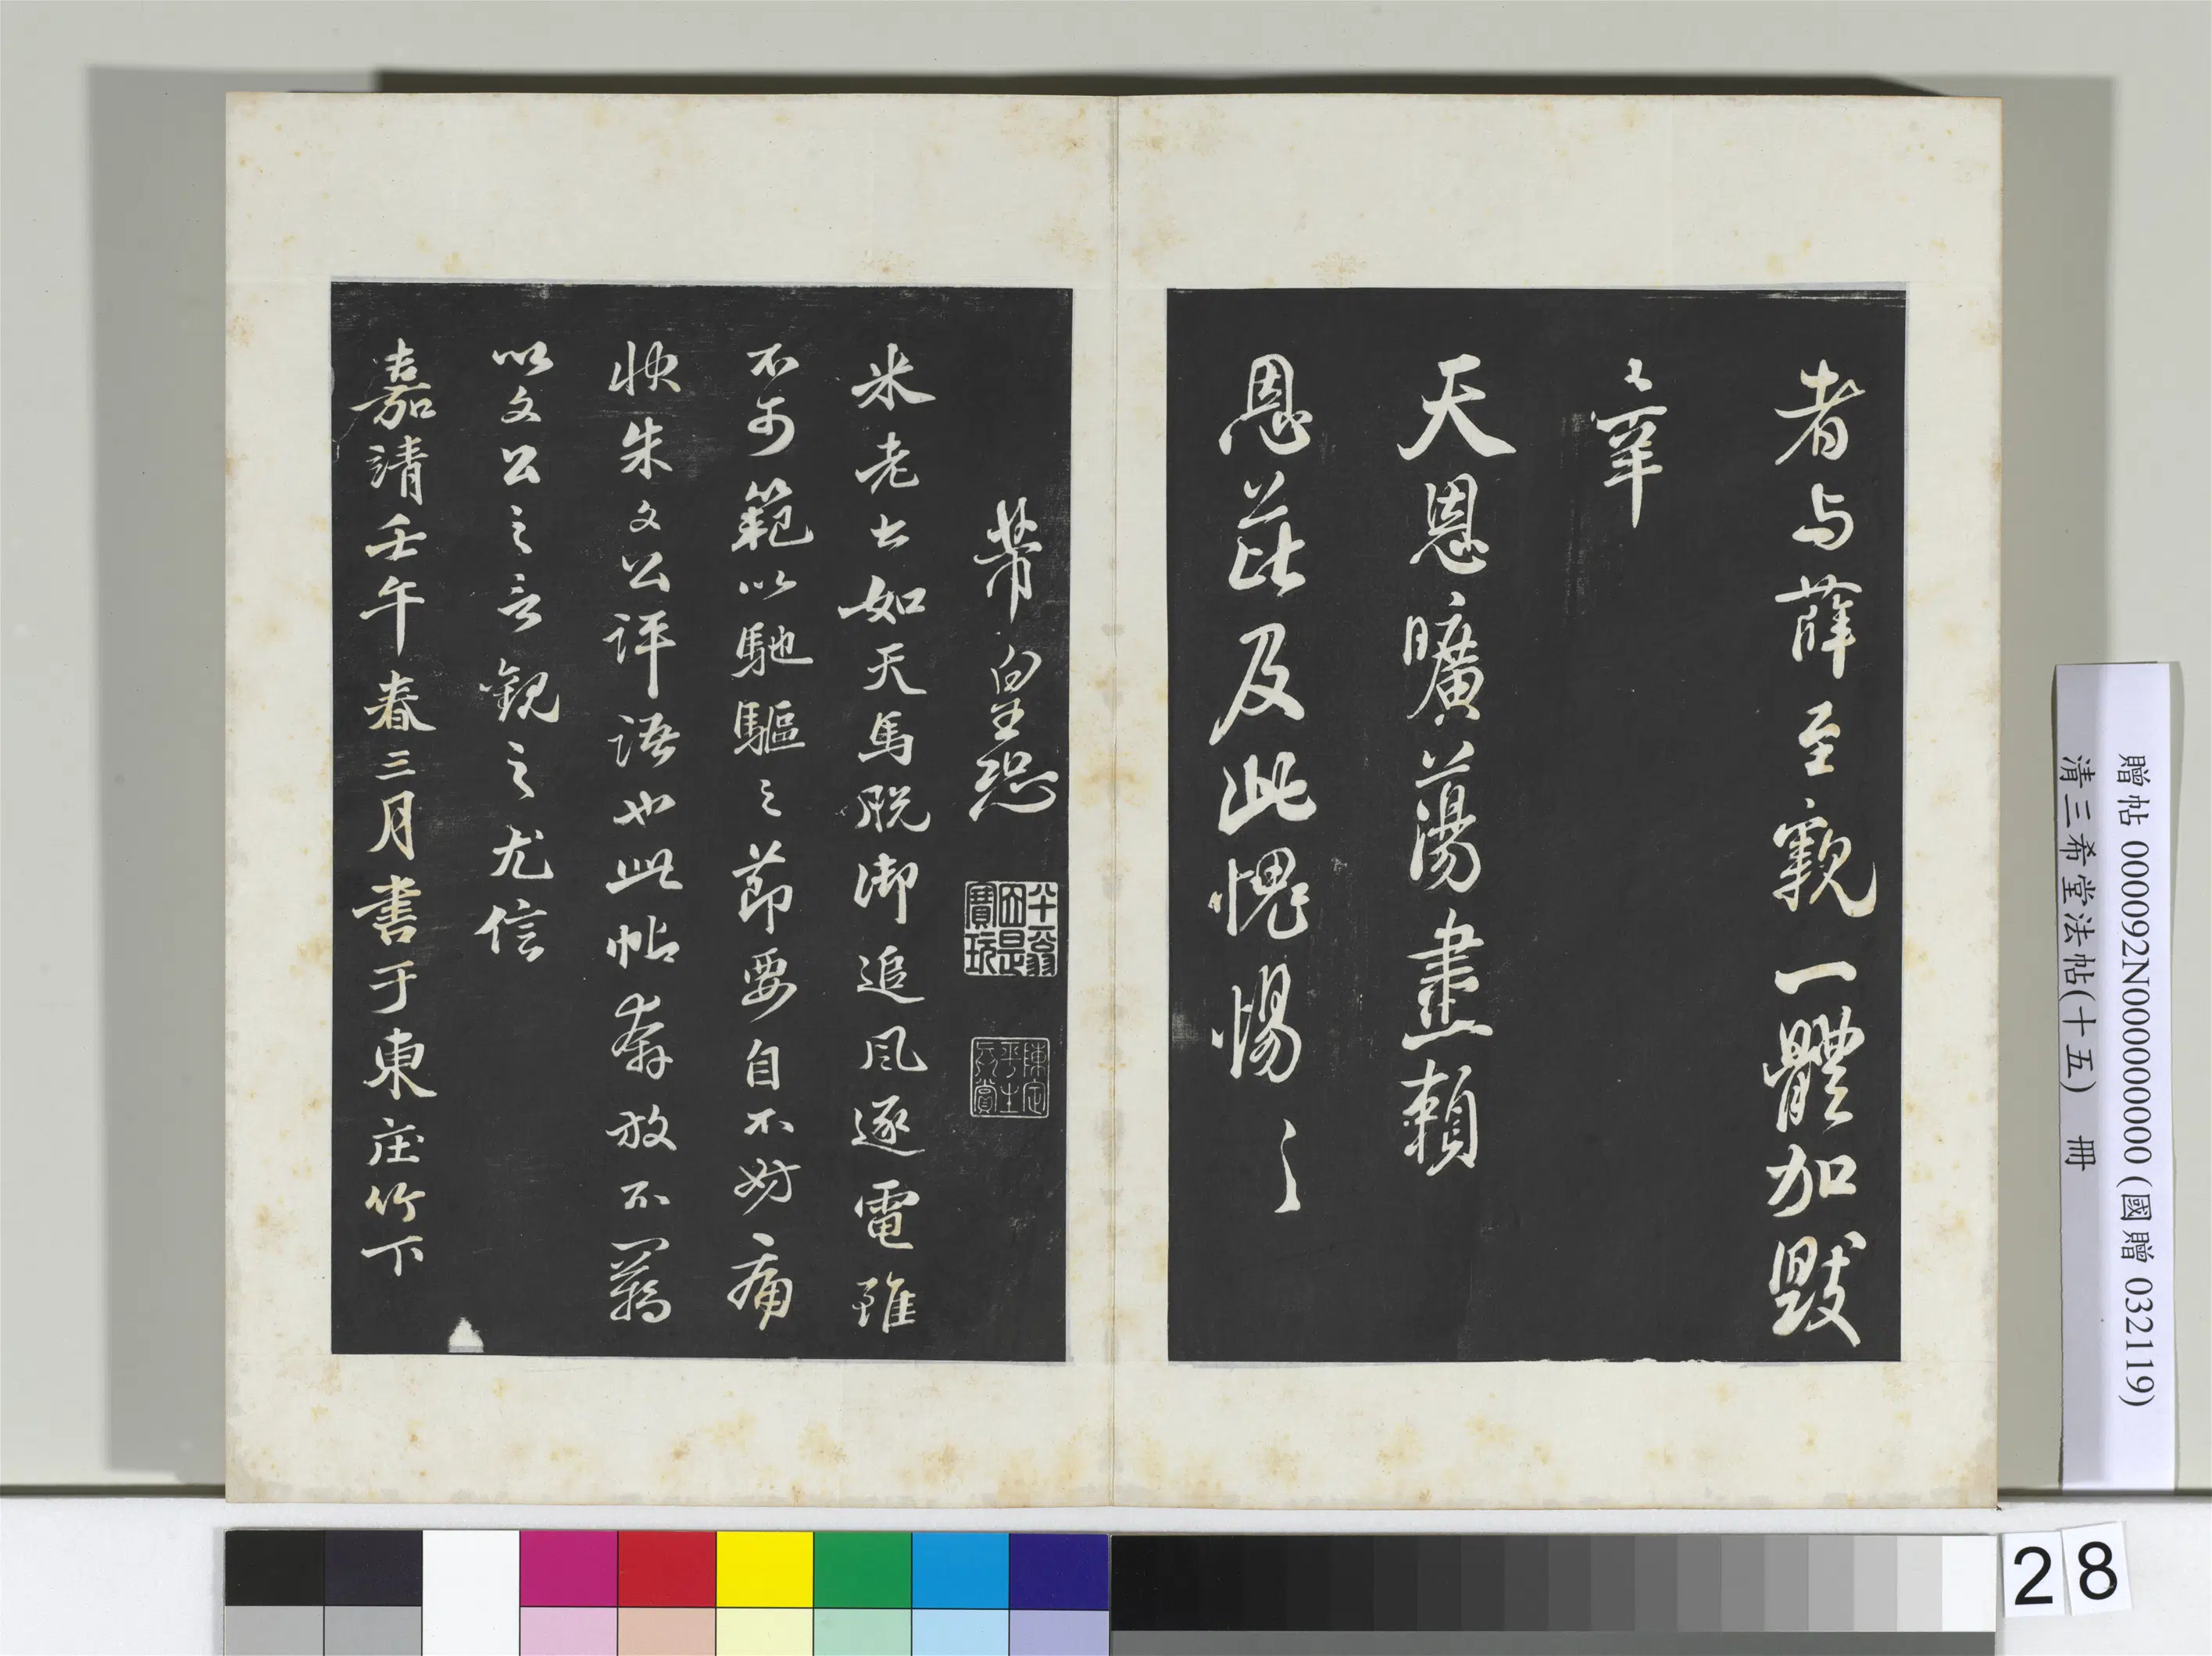 者与薛至親一體加毀
之辜
天恩曠蕩盡賴
恩芘及此愧惕〻
芾皇恐
陳定平生真賞
米老書如天馬脫御追風逐電雖
不可範以馳驅之節要自不妨痛
快朱文公評語也此帖奔放不羈
以文公之言觀之尤信
嘉靖壬午春三月書于東庄竹下
贈帖 000092N000000000 (國贈 032119)
清三希堂法帖(十五) 冊
28